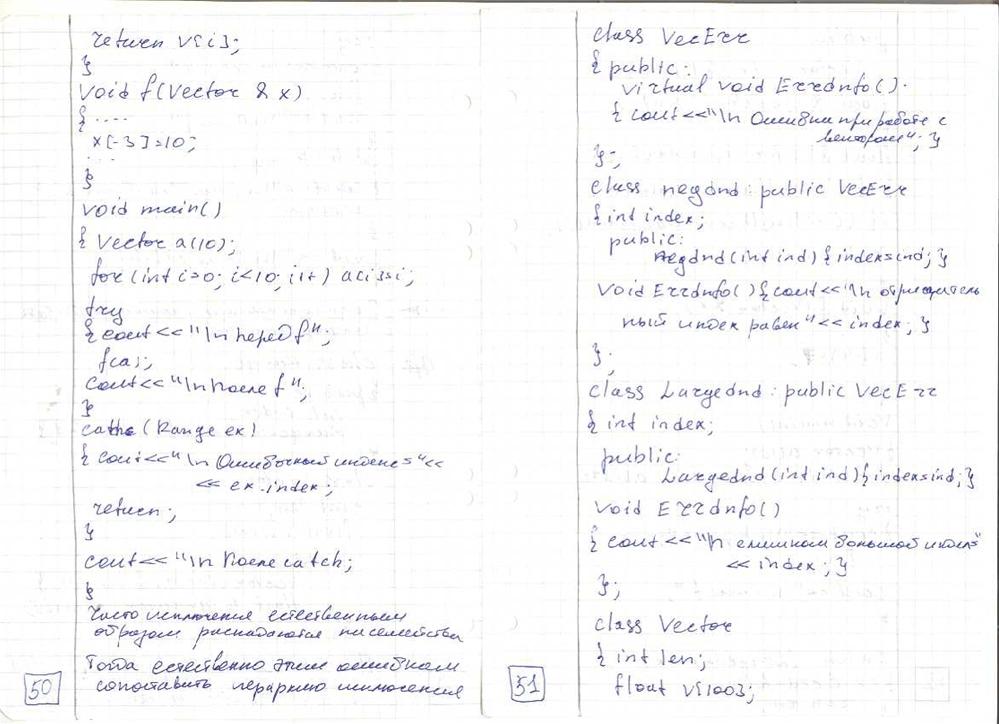 return v[i];
}
void f(Vector & x)
{ ....
x[-3]=10;
...
}
void main()
{ Vector a(10);
for(int i=0; i<10; i++) a[i]=i;
try
{ cout<<"\n перед f";
f(a);
cout<<"\n После f";
}
catch(Range ex)
{ cout<<"\n Ошибочный индекс="<<
<< ex.index;
return;
}
cout<<"\n После catch;
}
Часто исключения естественным
образом распадаются на семейства
Тогда естественно этим ошибкам
сопоставить иерархию исключения
50
class VecErr
{ public:
virtual void ErrInfo().
{ cout<<"\n Ошибки при работе с
вектором"; }
};
class negInd: public VecErr
{ int index;
public:
negInd(int ind) {index=ind; }
void ErrInfo(){cout<<"\n отрицатель
ный индек равен"<< index; }
};
class LargeInd: public VecErr
{ int index;
public:
LargeInd(int ind){index=ind; }
void ErrInfo()
{ cout<<"\n слишком большой индекс"
<< index; }
};
class Vector
{ int len;
float v[100];
51